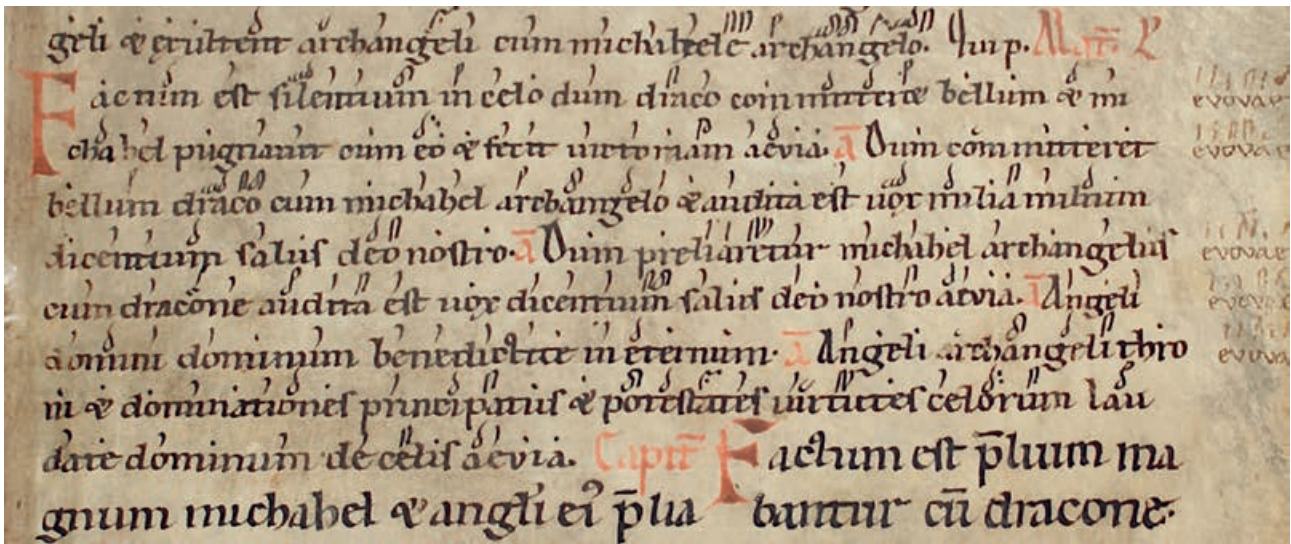 geli & exultent archangeli cum michahele archangelo. In ev. 
Factum est silentium in celo dum draco committeret bellum & mi evovae
chahel pugnavit cum eo & fecit victoriam aevia. A Dum committeret evovae
bellum draco cum michahel archangelo & audita est vox milia milium
dicentium salus deo nostro. A Dum preliaretur michahel archangelus evovae
cum dracone audita est vox dicentium salus deo nostro aevia. A Angeli evovae
domini dominum benedicite in eternum. A Angeli archangeli thro evovae
ni & dominationes principatus & potestates virtutes celorum lau
date dominum de celis aevia. Capit̄ Factum est p̄lium ma
gnum michahel & angli ei᾽ p̄lia bantur cū dracone.